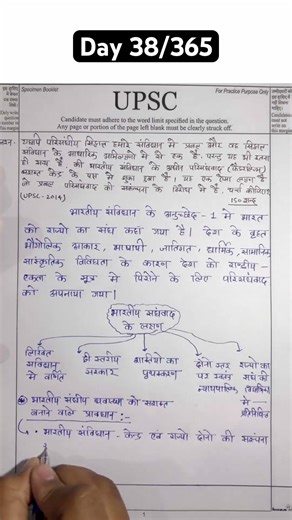 Day 38/365
Specimen Booklet
For Practice Purpose Only
UPSC
Candidate must adhere to the word limit specified in the question.
Any page or portion of the page left blank must be clearly struck off.
यद्यपि परिसंघीय सिद्धान्त हमारे संविधान में प्रबल है और वह सिद्धान्त
संविधान के आधारिक अभिलक्षणों में से एक है, परन्तु यह भी इतना
ही सत्य है कि भारतीय संविधान के अधीन परिसंघवाद (फैडरलिज्म)
सशक्त केन्द्र के पक्ष में झुका हुआ है। यह एक ऐसा लक्षण है
जो प्रबल परिसंघवाद की संकल्पना के विरोध में है, चर्चा कीजिए।
(UPSC-2014) 150 शब्द
भारतीय संविधान के अनुच्छेद - 1 में भारत
को राज्यो का संघ कहा गया है। देश के वृहत
भौगोलिक आकार, भाषायी, जातिगत, धार्मिक, सामाजिक
सांस्कृतिक विविधता के कारण देश को राष्ट्रीय -
एकता के सूत्र में पिरोने के लिए परिसंघवाद
को अपनाया गया।
भारतीय संघवाद
के लक्षण
लिखित संविधान में वर्णित
द्वी स्तरीय सरकार
शक्तियों का पृथक्करण
दोनो स्तर पर स्वतंत्र न्यायपालिका
राज्यों का संघ की में प्रतिनिधित्व
भारतीय संघीय व्यवस्था को सशक्त
बनाने वाले प्रावधान :-
भारतीय संविधान - केन्द्र एवं राज्यो दोनो की सर्वोच्चता
1